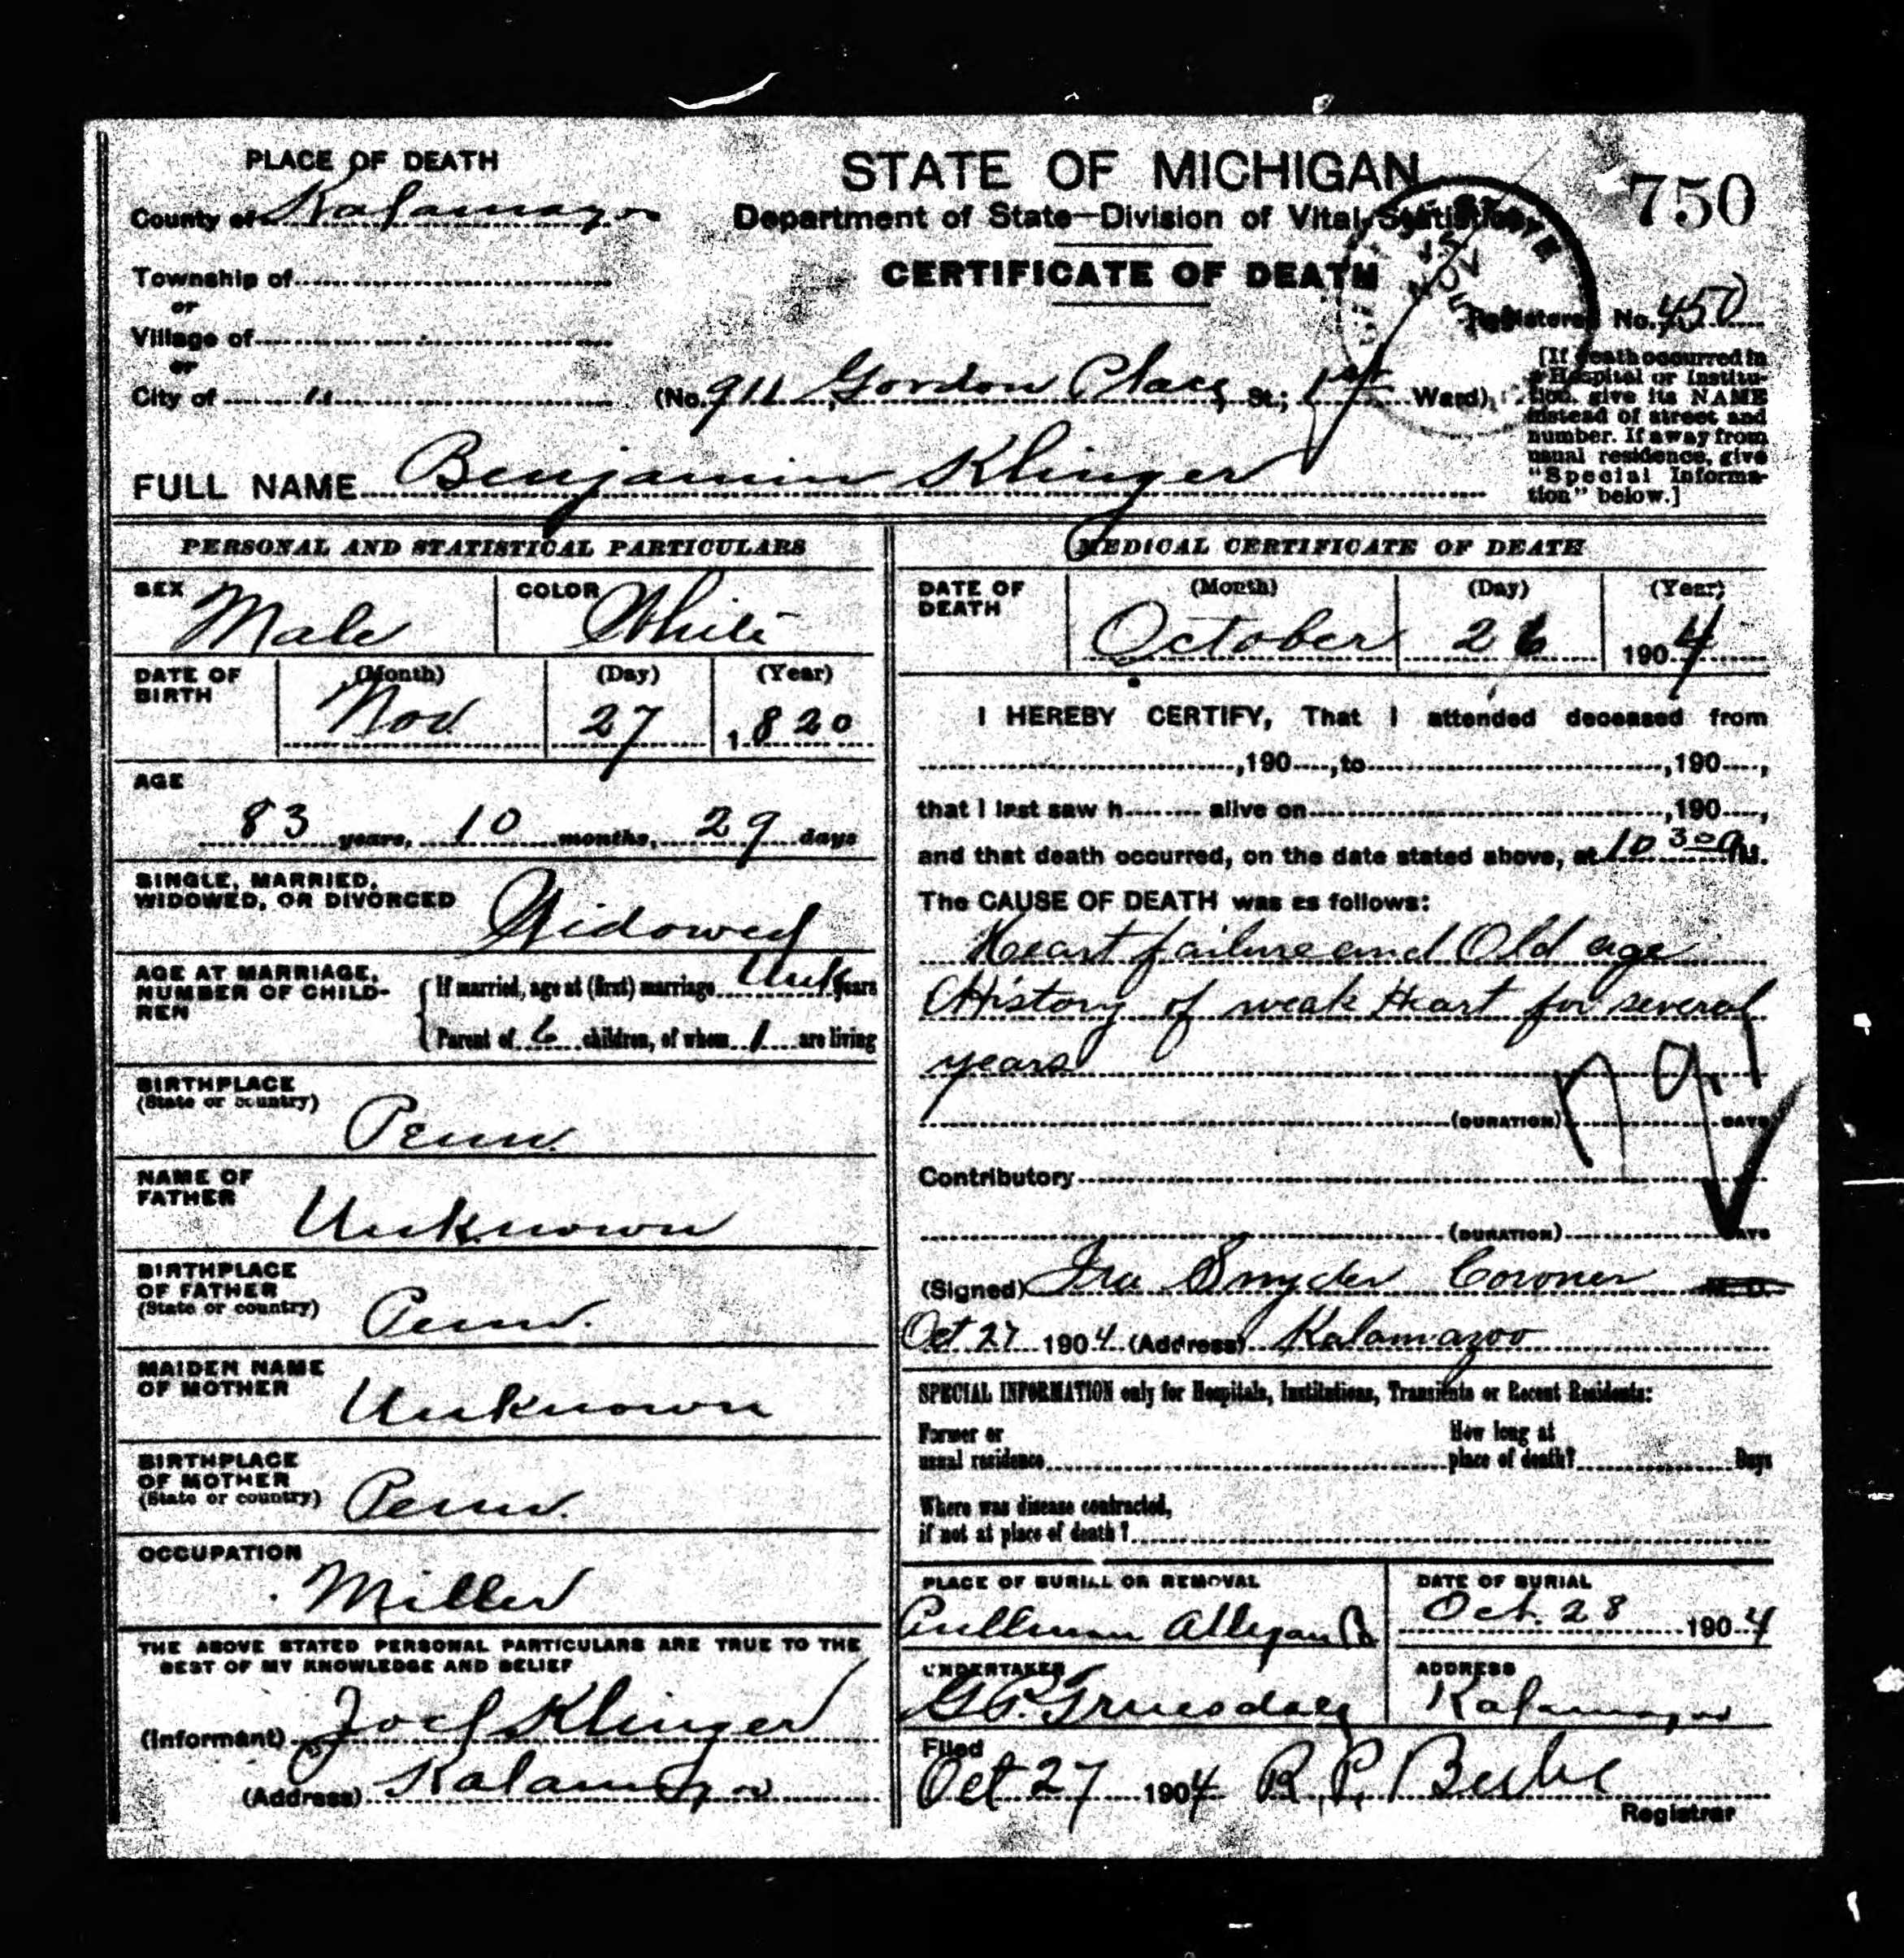 PLACE OF DEATH
County of Kalamazoo
Township of
or
Village of
or
City of "
STATE OF MICHIGAN
Department of State—Division of Vital Statistics
CERTIFICATE OF DEATH
750
Registered No. 450
(No. 911 Gordon Place St.; 1st Ward)
[If death occurred in
a Hospital or Institu-
tion, give its NAME
instead of street and
number. If away from
usual residence, give
"Special Informa-
tion" below.]
FULL NAME Benjamin Klinger
PERSONAL AND STATISTICAL PARTICULARS
SEX Male
COLOR White
DATE OF BIRTH
(Month) (Day) (Year)
Nov 27 1820
AGE
83 years, 10 months, 29 days
SINGLE, MARRIED,
WIDOWED, OR DIVORCED Widowed
AGE AT MARRIAGE,
NUMBER OF CHILD-
REN
If married, age at (first) marriage Unk years
Parent of 6 children, of whom 1 are living
BIRTHPLACE
(State or country)
Penn.
NAME OF
FATHER
Unknown
BIRTHPLACE
OF FATHER
(State or country)
Penn.
MAIDEN NAME
OF MOTHER
Unknown
BIRTHPLACE
OF MOTHER
(State or country)
Penn.
OCCUPATION
Miller
THE ABOVE STATED PERSONAL PARTICULARS ARE TRUE TO THE
BEST OF MY KNOWLEDGE AND BELIEF
(Informant) Joel Klinger
(Address) Kalamazoo
MEDICAL CERTIFICATE OF DEATH
DATE OF DEATH
(Month) (Day) (Year)
October 26 1904
I HEREBY CERTIFY, That I attended deceased from
,190 ,to ,190 ,
that I last saw h alive on ,190 ,
and that death occurred, on the date stated above, at 10 30 a M.
The CAUSE OF DEATH was as follows:
Heart failure and Old age
History of weak Heart for several
years
(DURATION) DAYS
Contributory
(DURATION) DAYS
(Signed) Ira Snyder Coroner M. D.
Oct 27 1904 (Address) Kalamazoo
SPECIAL INFORMATION only for Hospitals, Institutions, Transients or Recent Residents:
Former or
usual residence
How long at
place of death? Days
Where was disease contracted,
if not at place of death?
PLACE OF BURIAL OR REMOVAL
Pullman Allegan Co
DATE OF BURIAL
Oct. 28 1904
UNDERTAKER
G. P. Truesdale
ADDRESS
Kalamazoo
Filed
Oct 27 1904 R. P. Beebe
Registrar